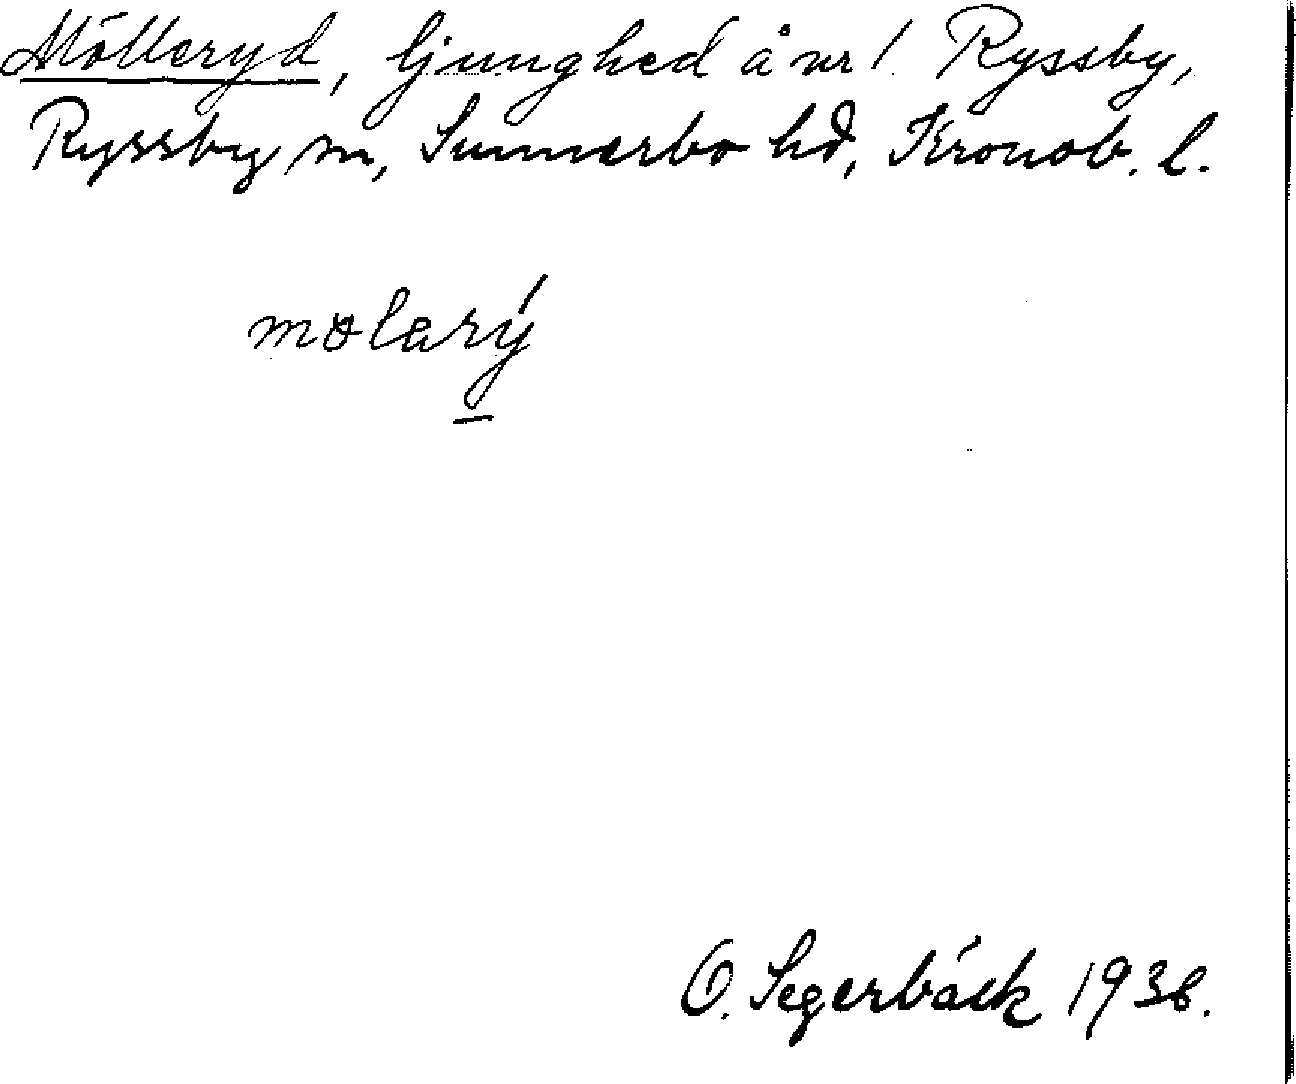 Mölleryd, ljunghed å nr 1 Ryssby,
Ryssby sn, Sunnerbo hd, Kronob. l.
mølarý
O. Segerbäck 1936.